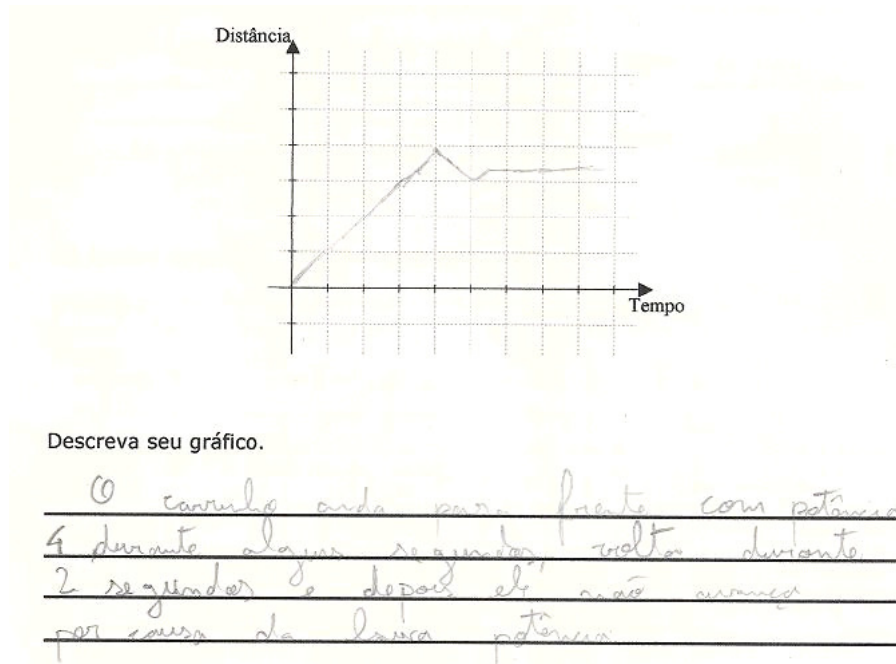 Distância
Tempo
Descreva seu gráfico.
O carrinho anda para frente com potência
4 durante alguns segundos, volta durante
2 segundos e depois ele não avança
por causa da baixa potência